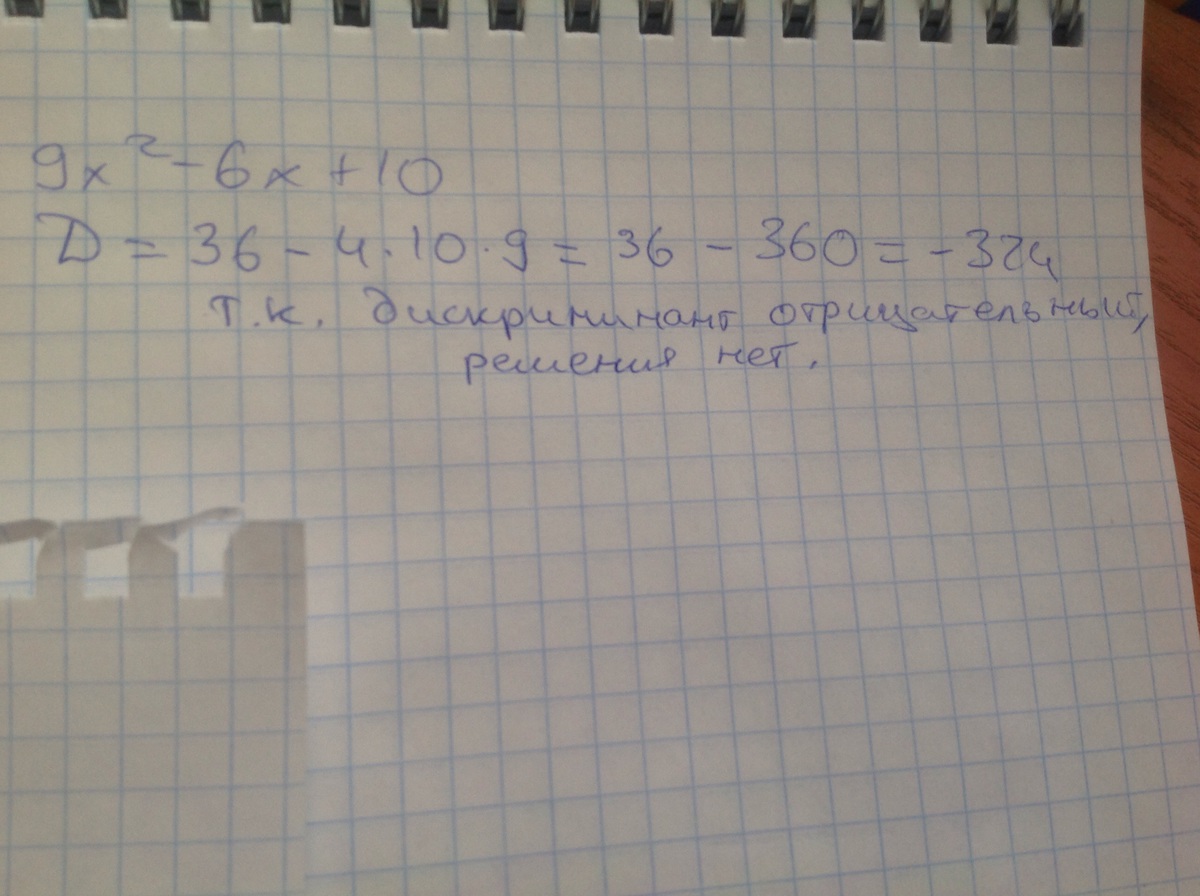 9x² - 6x + 10
D = 36 - 4 · 10 · 9 = 36 - 360 = -324
т.к. дискриминант отрицательный,
решения нет.